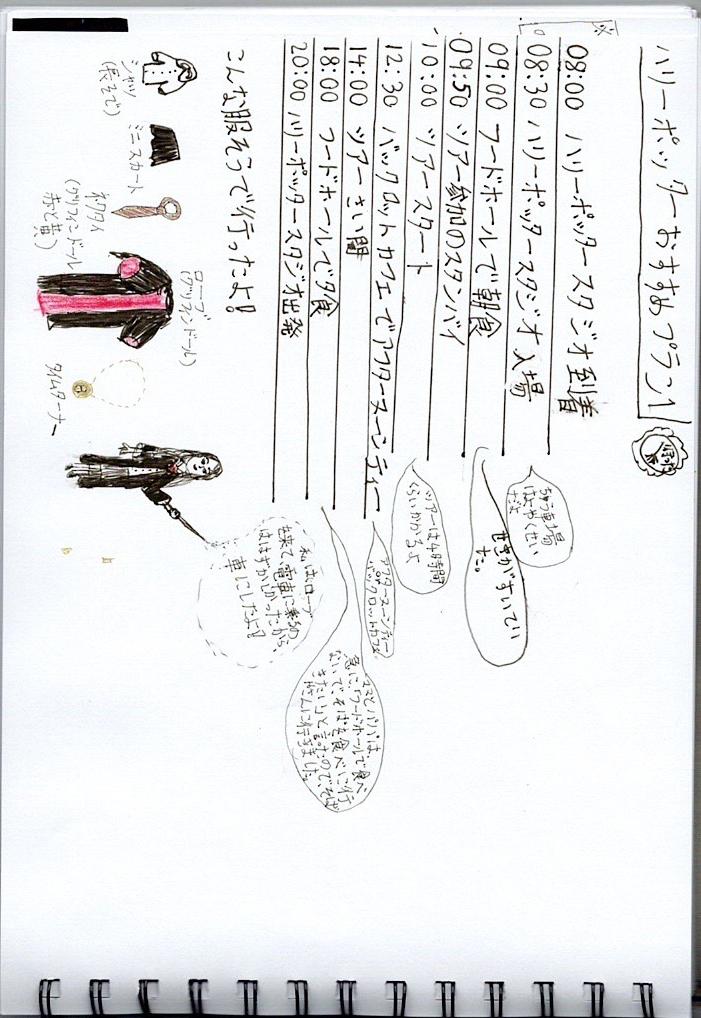 ハリーポッターおすすめプラン1
08:00 ハリーポッタースタジオ到着
08:30 ハリーポッタースタジオ入場
09:00 フードホールで朝食
09:50 ツアー参加のスタンバイ
10:00 ツアースタート
12:30 バックロットカフェでアフターヌーンティー
14:00 ツアーさい開
18:00 フードホールで夕食
20:00 ハリーポッタースタジオ出発
せきがすいてい
た。
ツアーは4時間
くらいかかるよ
アフターヌーンティー
バックロットカフェ
ママとパパは
急に、「フードホールで食べ
ないで、そばを食べに行
きたい」と言たのでそば
やさんに行きました。
こんな服そうで行ったよ!
シャツ
(長そで)
ミニスカート
ネクタイ
(グリフィンドール
赤と黄)
ローブ
(グリフィンドール)
タイムターナー
私はローブ
を来て、電車に乗るの
ははずかしかったから、
車にしたよ!